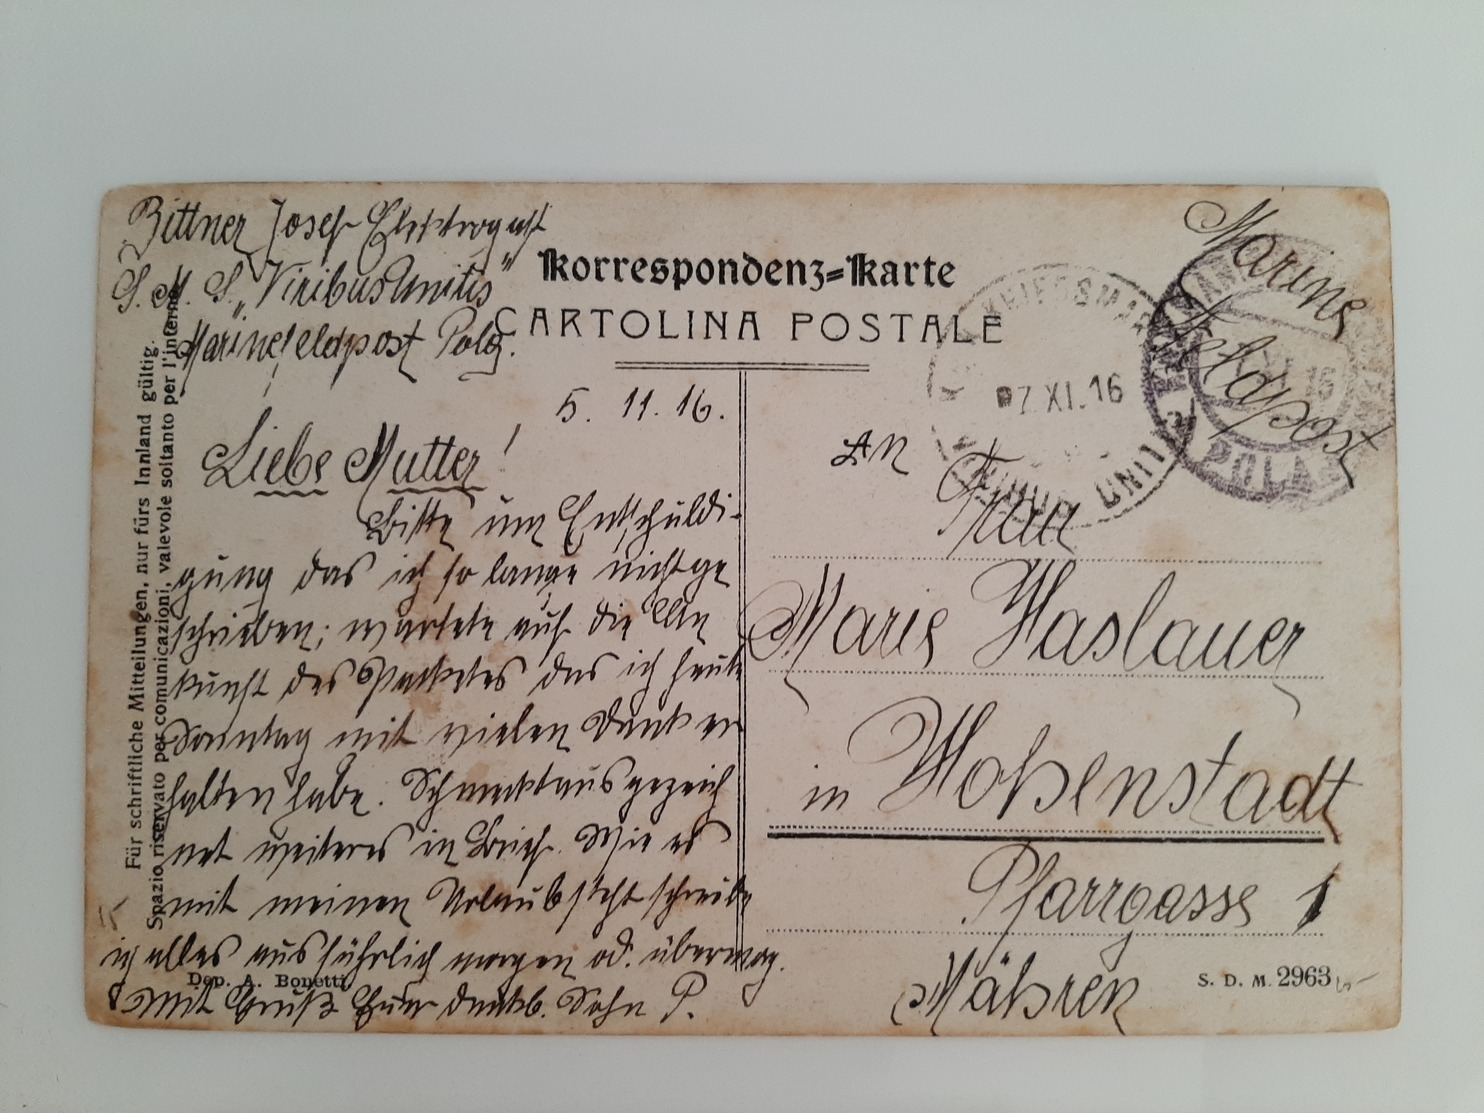 Bittner Josef Elektrogast
S. M. S. „Viribus Unitis"
Marinefeldpost Pola.
Korrespondenz=Karte
CARTOLINA POSTALE
5. 11. 16.
Liebe Mutter!
Bitte um Entschuldi-
gung das ich so lange nicht ge
schrieben; wartete auf die An
kunft des Packetes das ich heute
Sonntag mit vielen Dank er
halten habe. Schmeckt ausgezeich
net weiteres in Brief. Wie es
mit meinen Urlaub steht schreibe
ich alles ausführlich morgen od. übermorg.
Mit Gruß Euer dankb. Sohn P.
Für schriftliche Mitteilungen, nur fürs Innland gültig.
Spazio riservato per comunicazioni, valevole soltanto per l'interno
Dep. A. Bonetti
Marine
Feldpost
KRIEGSMAR
07 XI. 16
UNITIS
POLA
An
Frau
Marie Haslauer
in Hohenstadt
Pfarrgasse 1
Mähren
S. D. M. 2963